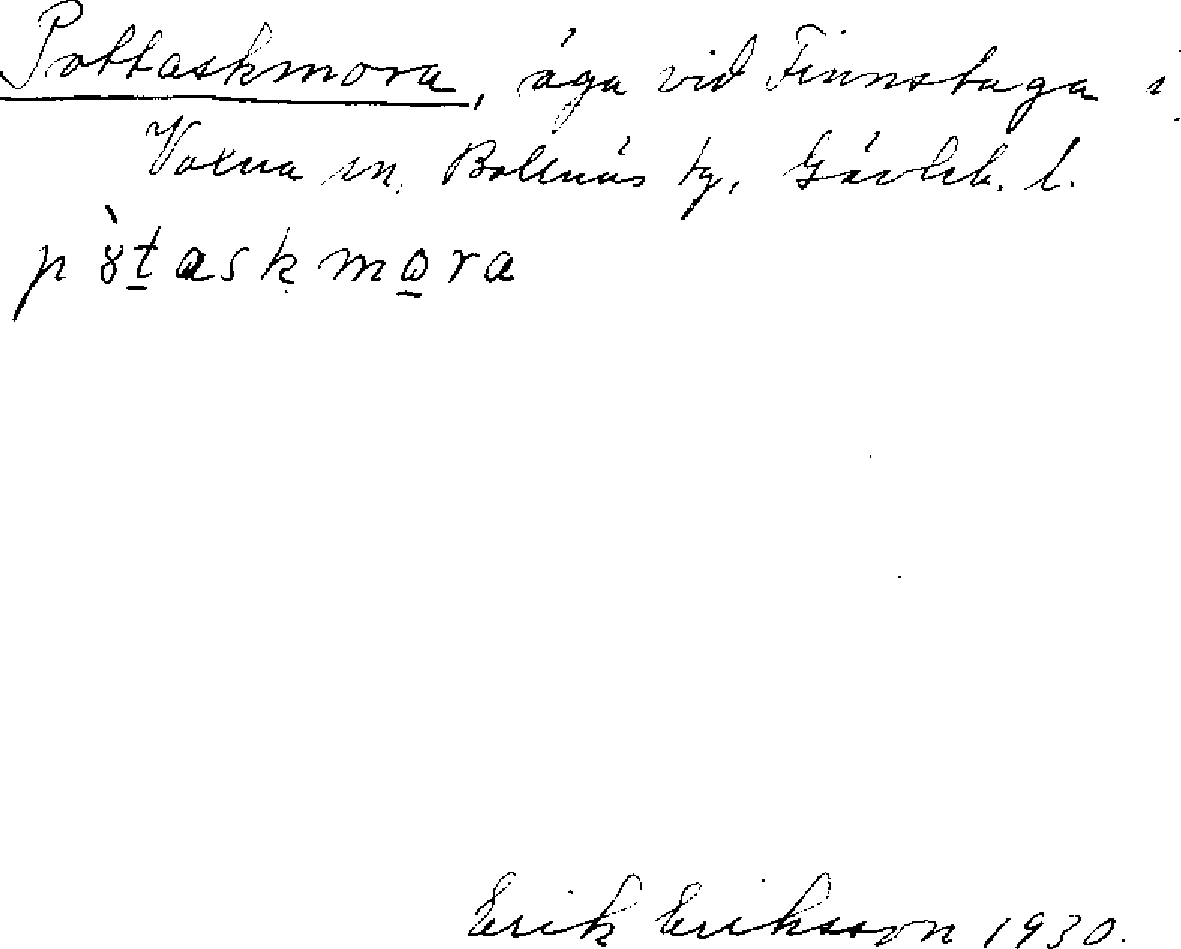 Pottaskmora, äga vid Finnstuga i
Voxna sn. Bollnäs tg, Gävleb. l.
p ò̱taskmo̱ra
Erik Eriksson 1930.